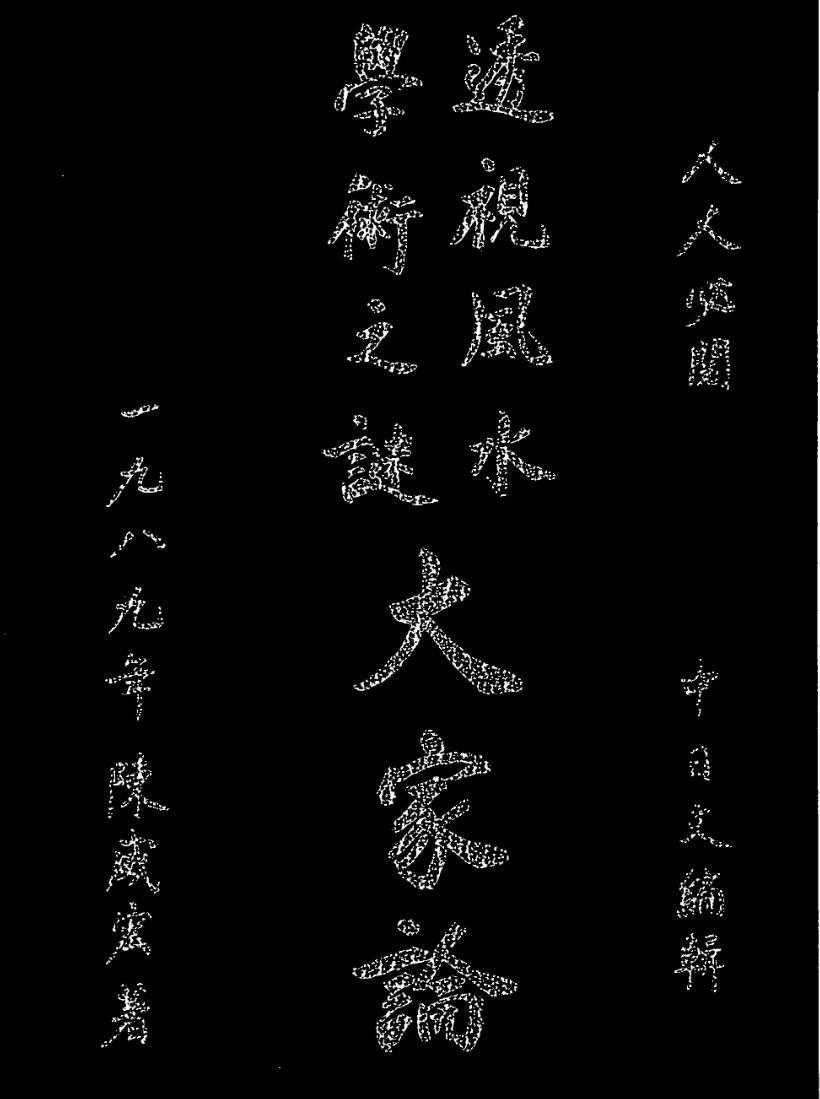 人人必閱
中日文編輯
透視風水
學術之謎
大家論
一九八九年陳威雲著